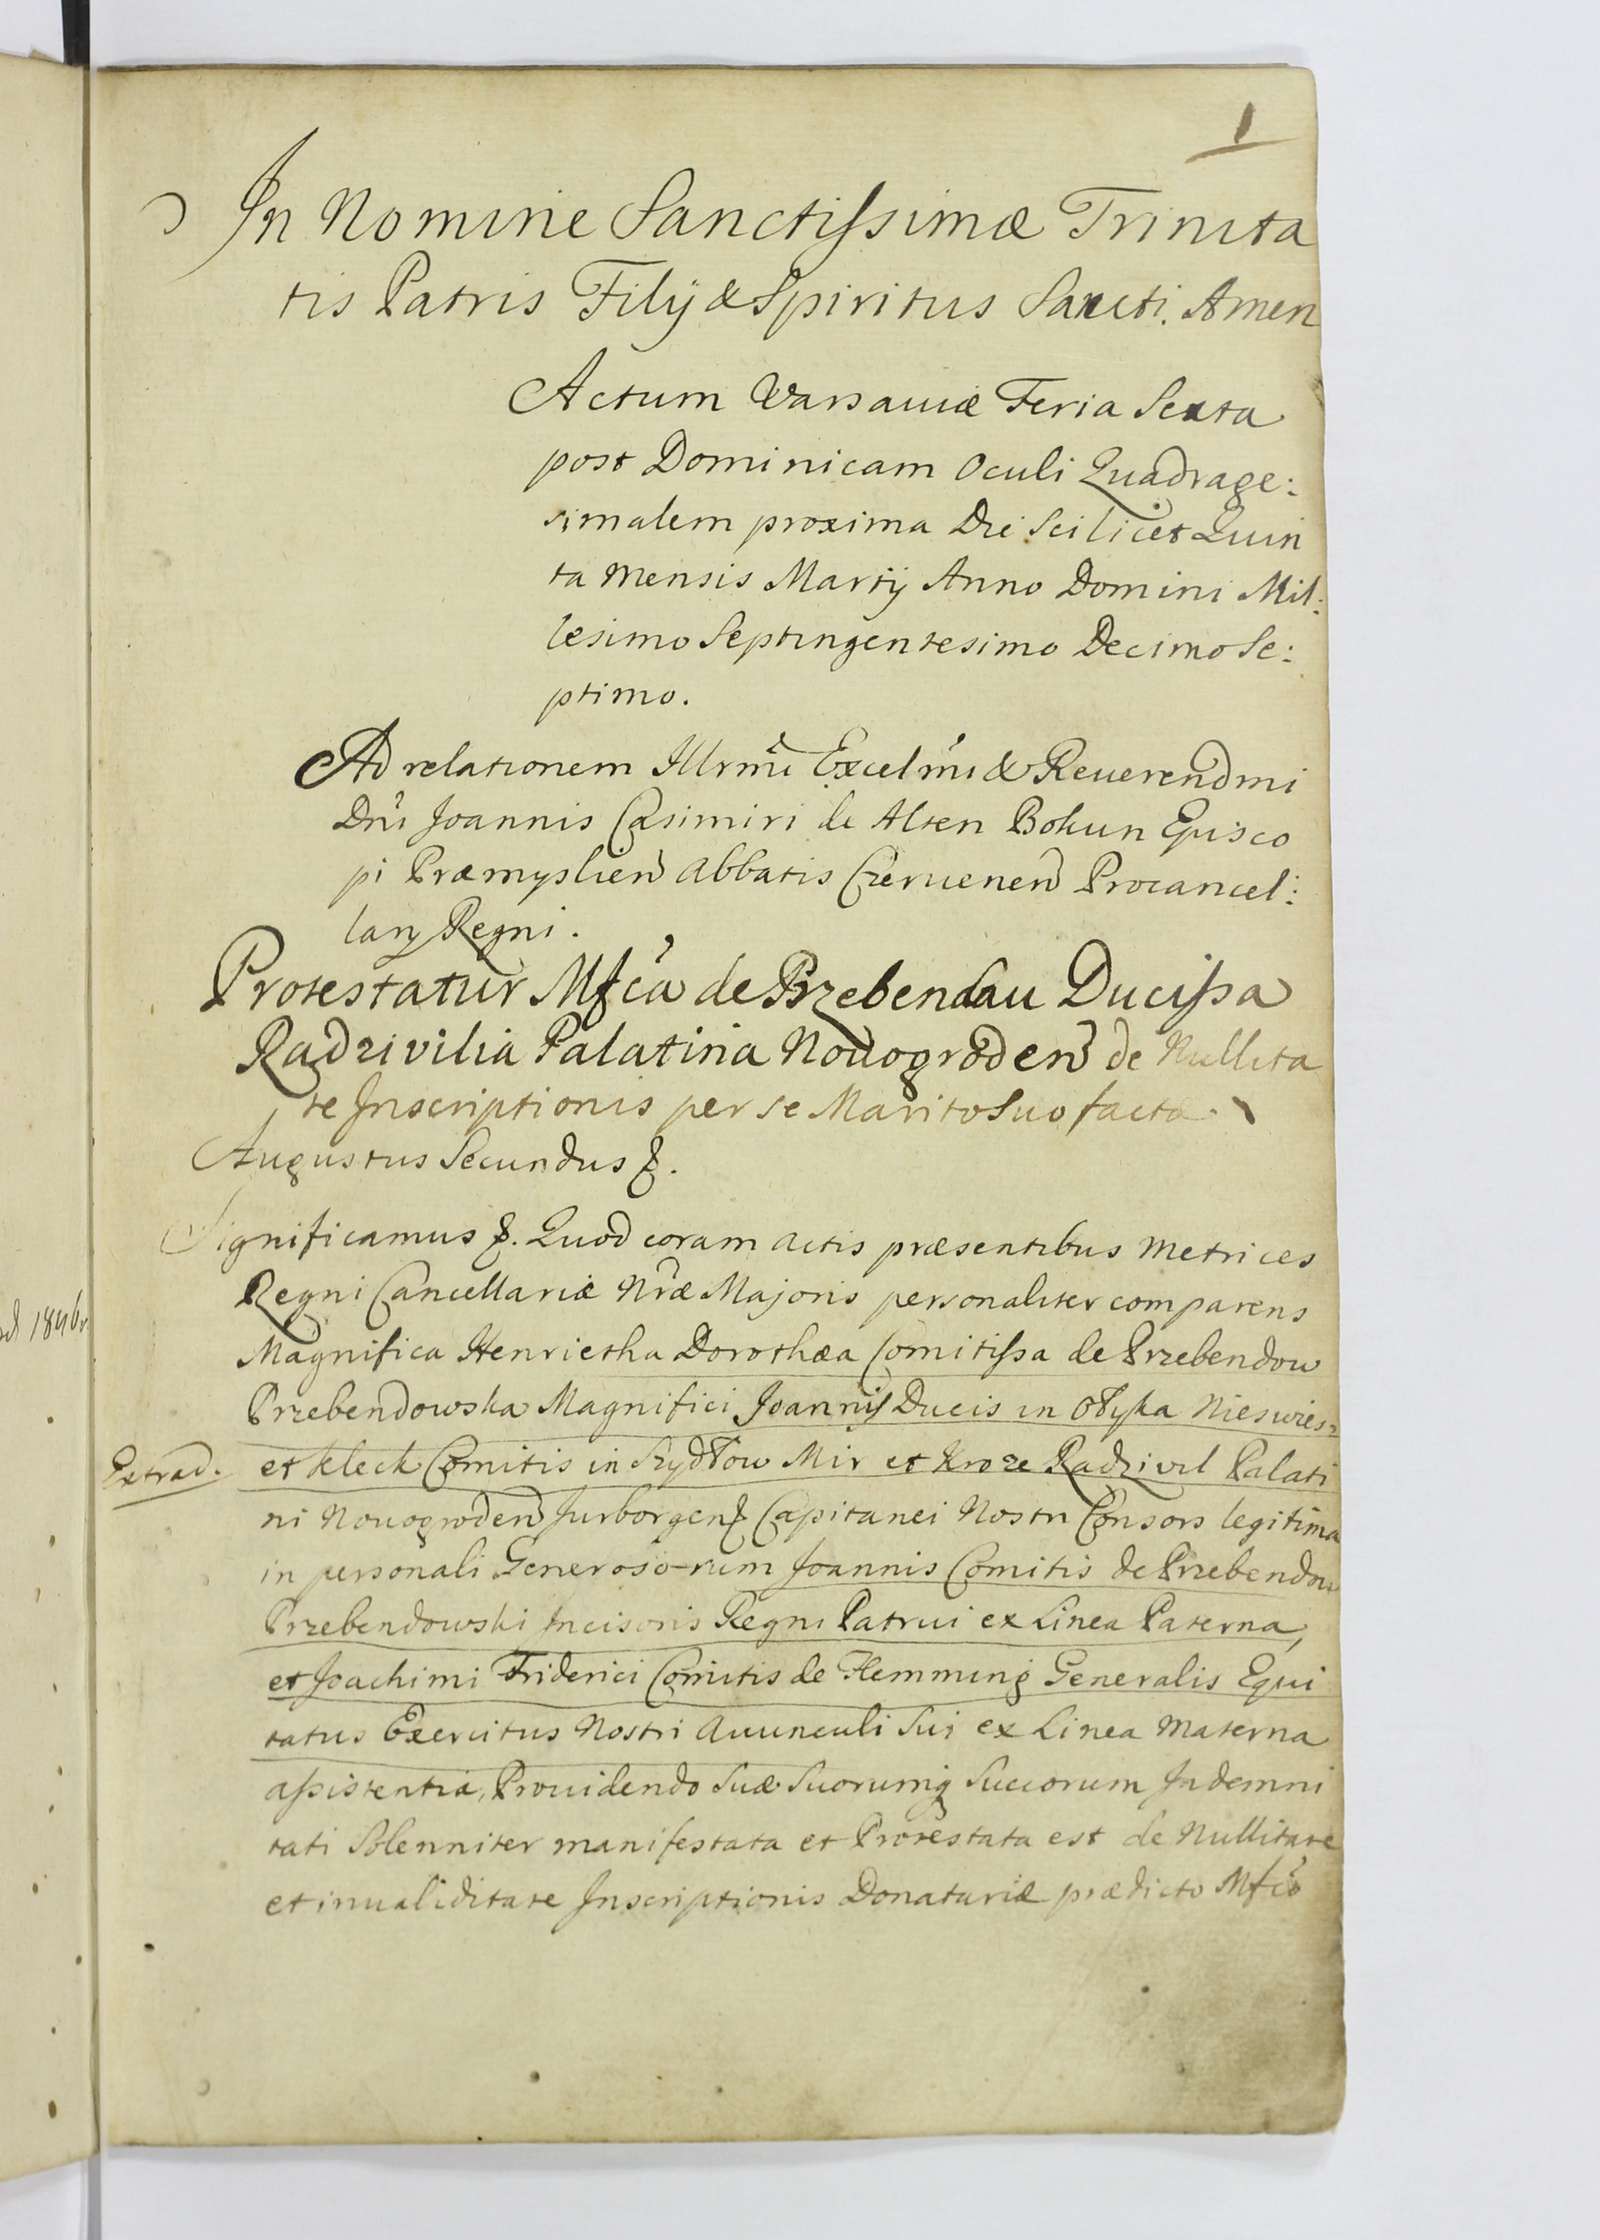 1
In Nomine Sanctissimæ Trinita
tis Patris Filij & Spiritus Sancti. Amen
Actum Varsaviæ Feria Sexta
post Dominicam Oculi Quadrage:
simalem proxima Die Scilicet Quin
ta Mensis Martij Anno Domini Mil:
lesimo Septingentesimo Decimo Se:
ptimo.
Ad relationem Illrmi Excelmi & Reverendmi
Dni Joannis Casimiri de Alten Bokun Episco
pi Præmyslien Abbatis Czervenen Procancel:
larij Regni.
Protestatur Mfca de Przebendau Ducissa
Radzivilia Palatina Novogroden de Nullita
te Inscriptionis per se Marito Suo facta.
Augustus Secundus &.
Significamus &. Quod coram actis præsentibus Metrices
Regni Cancellariæ Nræ Majoris personaliter comparens
Magnifica Henrietha Dorothæa Comitissa de Przebendow
Przebendowska Magnifici Joannis Ducis in Ołyka Nieswies:
Extrad. et Kleck Comitis in Szydłow Mir et Kroze Radzivil Palati
ni Novogroden Jurborgen Capitanei Nostri Consors legitima
in personali Generoso-rum Joannis Comitis de Przebendow
Przebendowski Incisoris Regni Patrui ex Linea Paterna,
et Joachimi Friderici Comitis de Flemming Generalis Equi
tatus Exercitus Nostri Avunculi Sui ex Linea Materna
assistentia, Providendo Suæ Suorumq Succorum Indemni
tati Solenniter manifestata et Protestata est de Nullitate
et invaliditate Inscriptionis Donatariæ prædicto Mfco